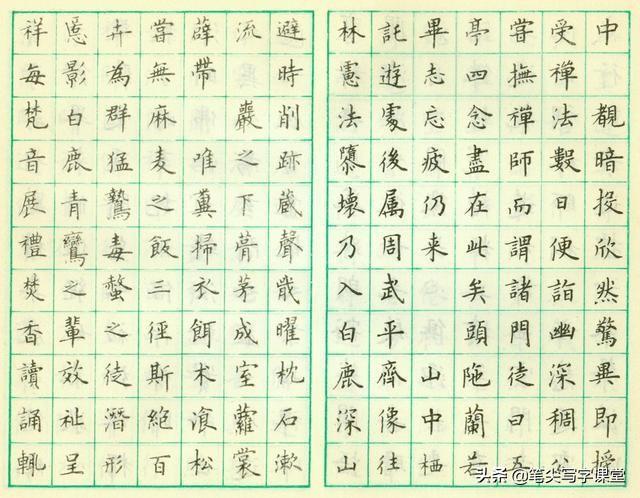 中覩暗投欣然驚異即授
受禪法數日便詣幽深稠公
嘗撫禪師而謂諸門徒曰五
亭四念盡在此矣頭陁蘭若
畢志忘疲仍来山中栖
託遊處後属周武平齊像往
林慮法隳壊乃入白鹿深山
避時削跡蔵聲戢曜枕石漱
流巖之下葺茅成室蘿裳
薜帶唯糞掃衣餌术飡松
嘗無麻麦之飯三徑斯絶百
卉為群猛鷙毒螫之徒潛形
匿影白鹿青鸞之輩效祉呈
祥每梵音展禮焚香讀誦輒
头条@笔尖写字课堂